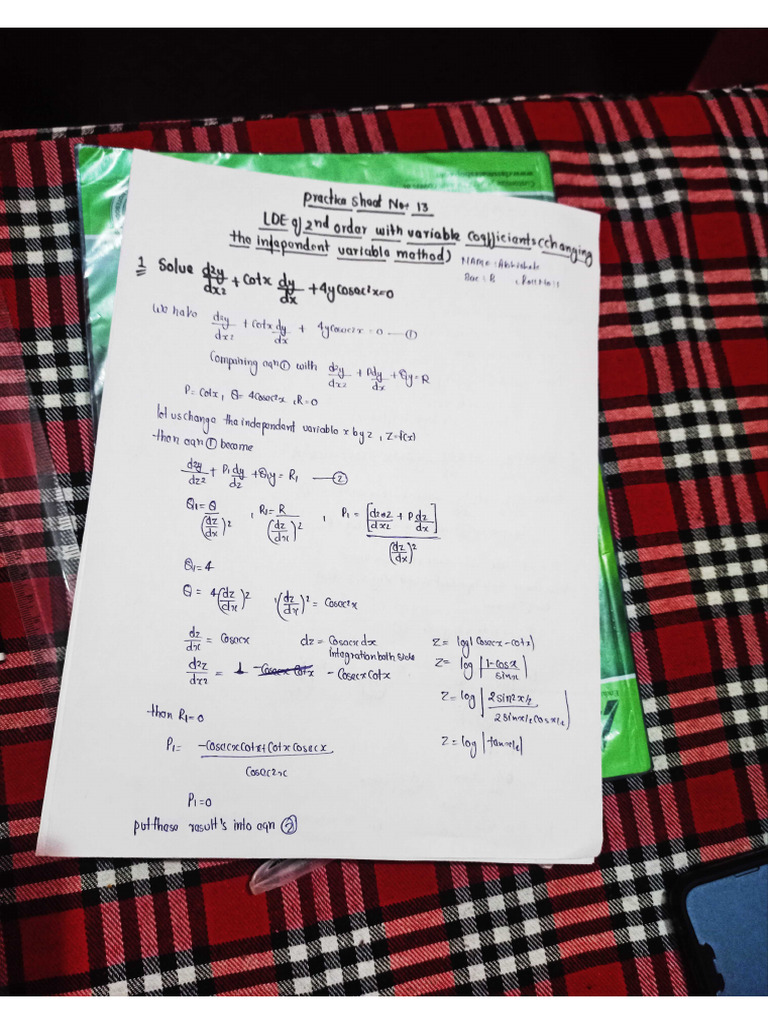 Practice Sheet No: 13
LDE of 2nd order with variable coefficients (changing
the independent variable method)
NAME: Abhishek
Sec: B , Roll No: 1
1 Solve d²y/dx² + cotx dy/dx + 4y cosec²x = 0
We have d²y/dx² + cotx dy/dx + 4y cosec²x = 0 —①
Comparing eqn ① with d²y/dx² + P dy/dx + Qy = R
P = cotx, Q = 4cosec²x, R = 0
let us change the independent variable x by z, z = f(x)
then eqn ① become
d²y/dz² + P₁ dy/dz + Q₁y = R₁ —②
Q₁ = Q/(dz/dx)² , R₁ = R/(dz/dx)² , P₁ = [d²z/dx² + P dz/dx]/(dz/dx)²
Q₁ = 4
Q = 4(dz/dx)² , (dz/dx)² = cosec²x
dz/dx = cosecx dz = cosecx dx
integration both side
d²z/dx² = -cosecx cotx
z = log|cosecx - cotx|
z = log |1-cosx/sinx|
z = log |2sin²x/2 / 2sinx/2 cosx/2|
z = log |tanx/2|
then R₁ = 0
P₁ = -cosecx cotx + cotx cosecx / cosec²x
P₁ = 0
put these result's into eqn ②